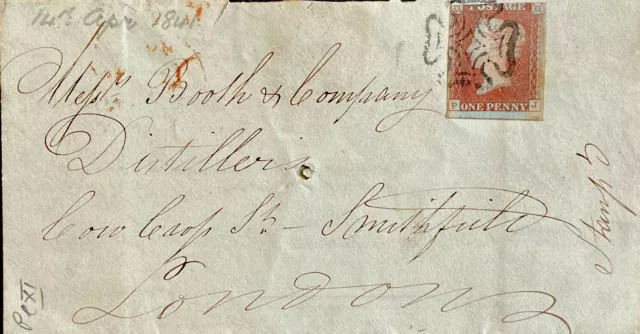 14th Apr 1841.
POSTAGE
ONE PENNY
P J
Messrs Booth & Company
Distillers
Cow Cross St - Smithfield
London
Stamp'd
Pl XI